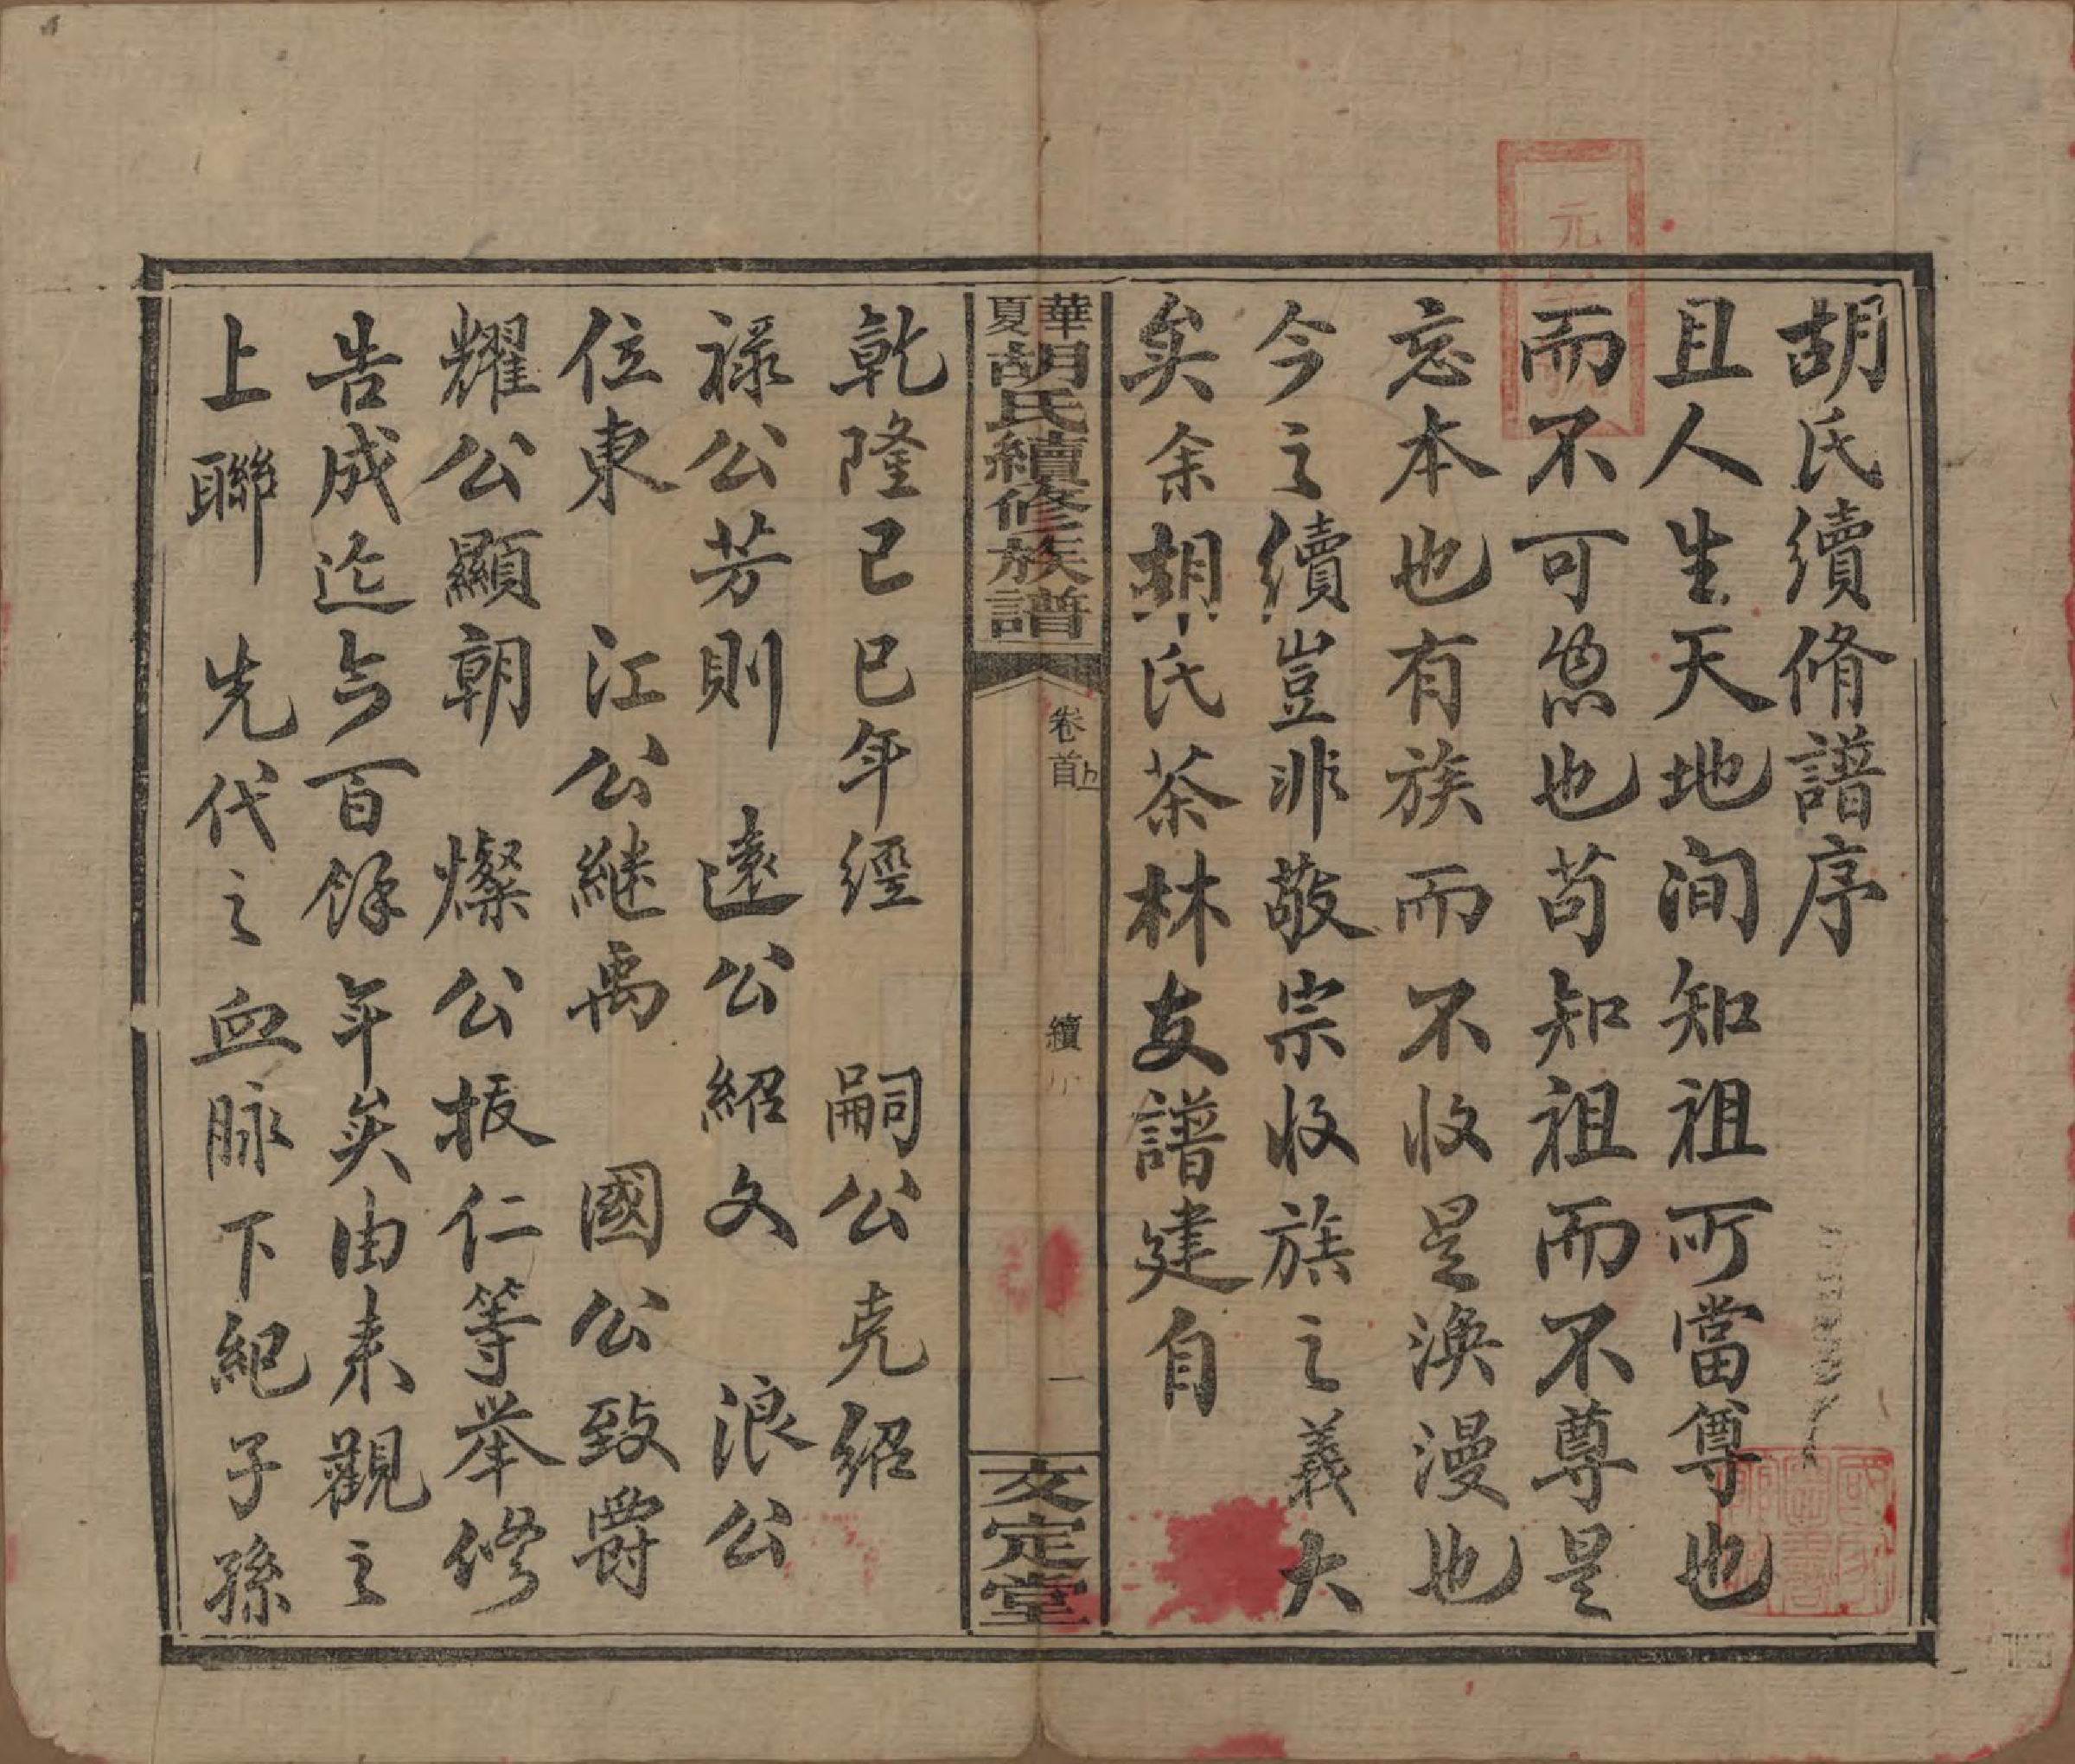 胡氏續脩譜序
且人生天地間知祖所當尊也
而不可忽也苟知祖而不尊是
忘本也有族而不收是渙漫也
今之續豈非敬宗收族之義大
矣余胡氏茶林支譜建自
華夏胡氏續修族譜
卷首上
續序
一
文定堂
乾隆己巳年經 嗣公克紹
祿公芳則 遠公紹文 浪公
位東 江公継禹 國公致爵
耀公顯朝 燦公振仁等举修
告成迄今百餘年矣由来觀之
上聯 先代之血脉下紀子孫
元